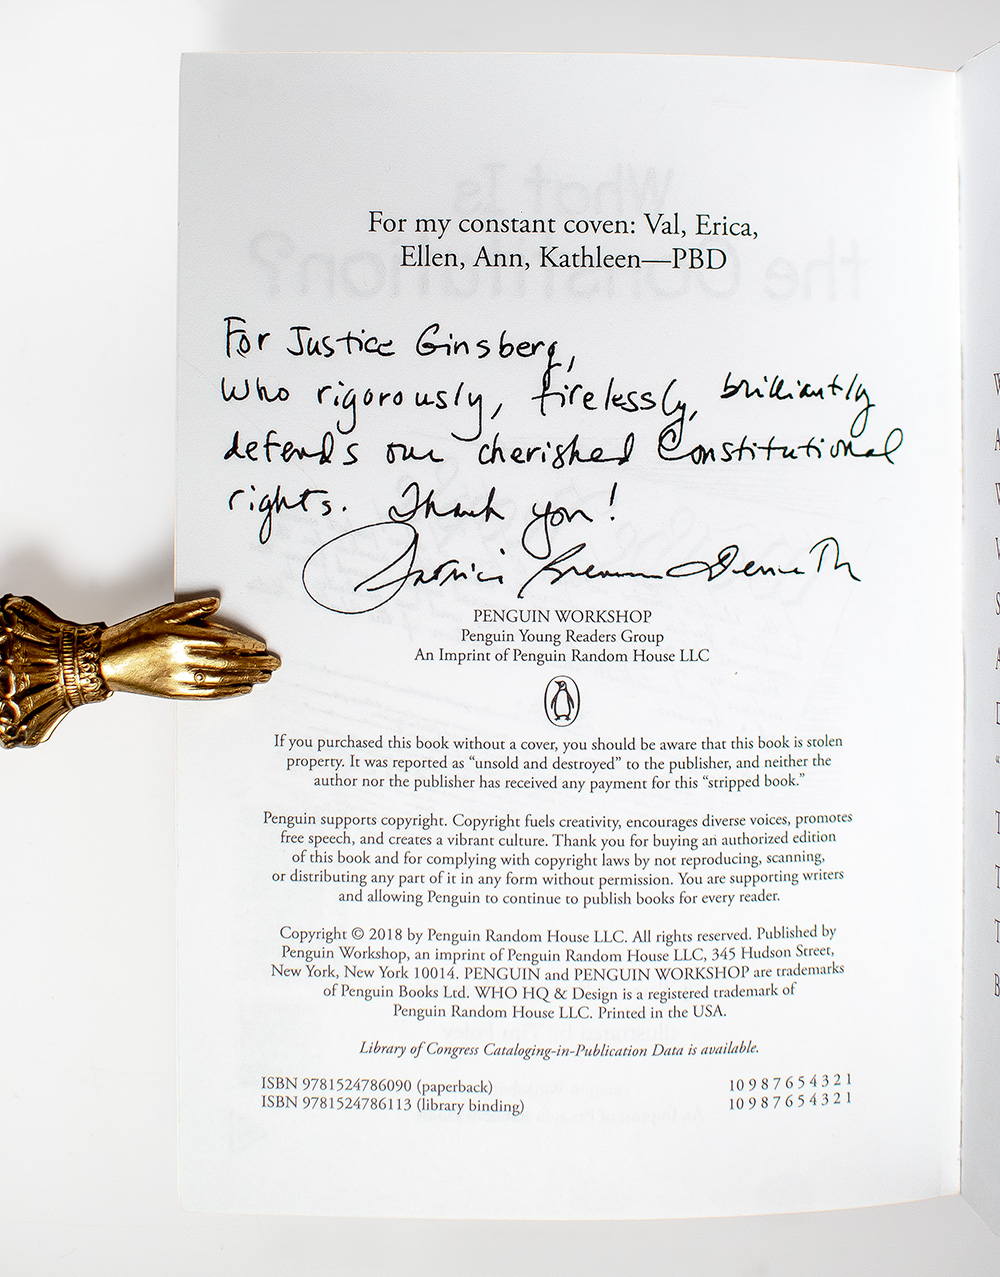 For my constant coven: Val, Erica,
Ellen, Ann, Kathleen—PBD
For Justice Ginsberg,
Who rigorously, tirelessly, brilliantly
defends our cherished Constitutional
rights. Thank you!
Patricia Brennan Demuth
PENGUIN WORKSHOP
Penguin Young Readers Group
An Imprint of Penguin Random House LLC
If you purchased this book without a cover, you should be aware that this book is stolen
property. It was reported as “unsold and destroyed” to the publisher, and neither the
author nor the publisher has received any payment for this “stripped book.”
Penguin supports copyright. Copyright fuels creativity, encourages diverse voices, promotes
free speech, and creates a vibrant culture. Thank you for buying an authorized edition
of this book and for complying with copyright laws by not reproducing, scanning,
or distributing any part of it in any form without permission. You are supporting writers
and allowing Penguin to continue to publish books for every reader.
Copyright © 2018 by Penguin Random House LLC. All rights reserved. Published by
Penguin Workshop, an imprint of Penguin Random House LLC, 345 Hudson Street,
New York, New York 10014. PENGUIN and PENGUIN WORKSHOP are trademarks
of Penguin Books Ltd. WHO HQ & Design is a registered trademark of
Penguin Random House LLC. Printed in the USA.
Library of Congress Cataloging-in-Publication Data is available.
ISBN 9781524786090 (paperback) 10 9 8 7 6 5 4 3 2 1
ISBN 9781524786113 (library binding) 10 9 8 7 6 5 4 3 2 1